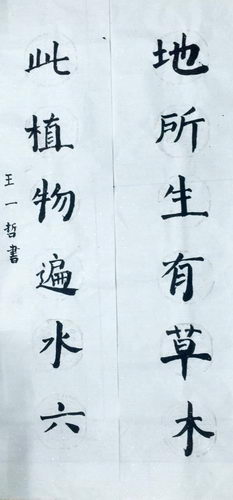 地所生有草木
此植物遍水六
王一哲書